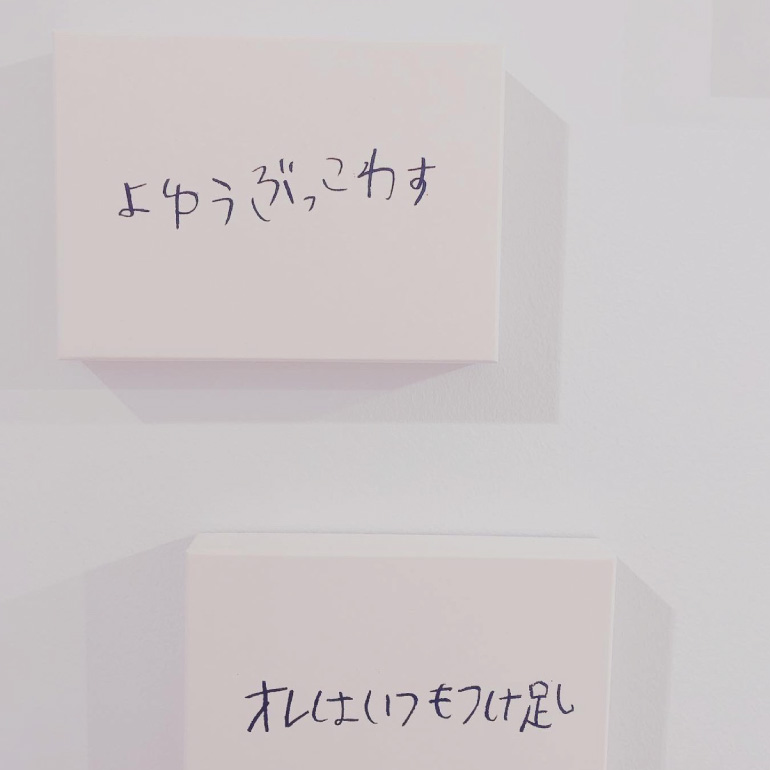 よゆうぶっこわす
オレはいつもつけ足し